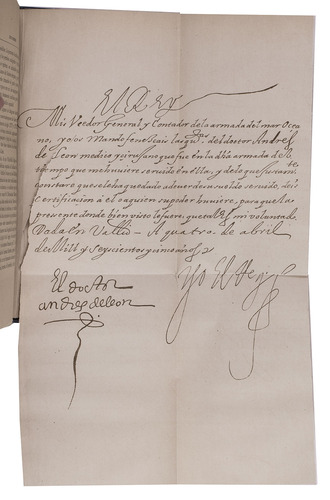 El Rey
Mis Veedor General y Contador de la armada del mar Ocea
no, yo os Mando fenescais la qu.ta del doctor Andres
de leon medico y cirujano que fue en la dha armada del
tiempo que me huuiere seruido en ella, y de lo que
constare que se le ha quedado a deuer de su sueldo seruido, deis
certificacion a el o a quien su poder huuiere, para que la
presente donde bien visto le fuere, que tal es mi voluntad.
Dada en Vallid – A quatro de abril
de Mill y Seyscientos y cinco años
Yo El Rey
El doctor
andres de leon